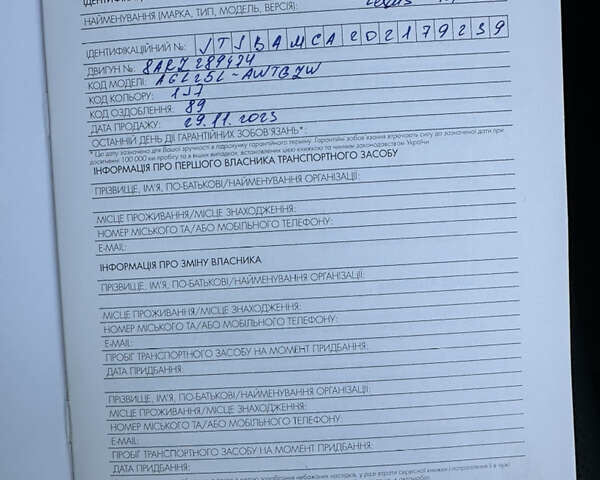 НАЙМЕНУВАННЯ (МАРКА, ТИП, МОДЕЛЬ, ВЕРСІЯ):
ІДЕНТИФІКАЦІЙНИЙ №: JTJBAMCA202179239
ДВИГУН №: 8ARZ289424
КОД МОДЕЛІ: AGL25L-AWTGZW
КОД КОЛЬОРУ: 1J7
КОД ОЗДОБЛЕННЯ: 89
ДАТА ПРОДАЖУ: 29.11.2023
ОСТАННІЙ ДЕНЬ ДІЇ ГАРАНТІЙНИХ ЗОБОВ'ЯЗАНЬ*:
* Цю дату зазначено для Вашої зручності в підрахунку гарантійного терміну. Гарантійні зобов'язання втрачають силу до зазначеної дати при
досягненні 100 000 км пробігу та в інших випадках, встановлених цією книжкою та чинним законодавством України.
ІНФОРМАЦІЯ ПРО ПЕРШОГО ВЛАСНИКА ТРАНСПОРТНОГО ЗАСОБУ
ПРІЗВИЩЕ, ІМ'Я, ПО-БАТЬКОВІ/НАЙМЕНУВАННЯ ОРГАНІЗАЦІЇ:
МІСЦЕ ПРОЖИВАННЯ/МІСЦЕ ЗНАХОДЖЕННЯ:
НОМЕР МІСЬКОГО ТА/АБО МОБІЛЬНОГО ТЕЛЕФОНУ:
E-MAIL:
ІНФОРМАЦІЯ ПРО ЗМІНУ ВЛАСНИКА
ПРІЗВИЩЕ, ІМ'Я, ПО-БАТЬКОВІ/НАЙМЕНУВАННЯ ОРГАНІЗАЦІЇ:
МІСЦЕ ПРОЖИВАННЯ/МІСЦЕ ЗНАХОДЖЕННЯ:
НОМЕР МІСЬКОГО ТА/АБО МОБІЛЬНОГО ТЕЛЕФОНУ:
E-MAIL:
ПРОБІГ ТРАНСПОРТНОГО ЗАСОБУ НА МОМЕНТ ПРИДБАННЯ:
ДАТА ПРИДБАННЯ:
ПРІЗВИЩЕ, ІМ'Я, ПО-БАТЬКОВІ/НАЙМЕНУВАННЯ ОРГАНІЗАЦІЇ:
МІСЦЕ ПРОЖИВАННЯ/МІСЦЕ ЗНАХОДЖЕННЯ:
НОМЕР МІСЬКОГО ТА/АБО МОБІЛЬНОГО ТЕЛЕФОНУ:
E-MAIL:
ПРОБІГ ТРАНСПОРТНОГО ЗАСОБУ НА МОМЕНТ ПРИДБАННЯ:
ДАТА ПРИДБАННЯ: